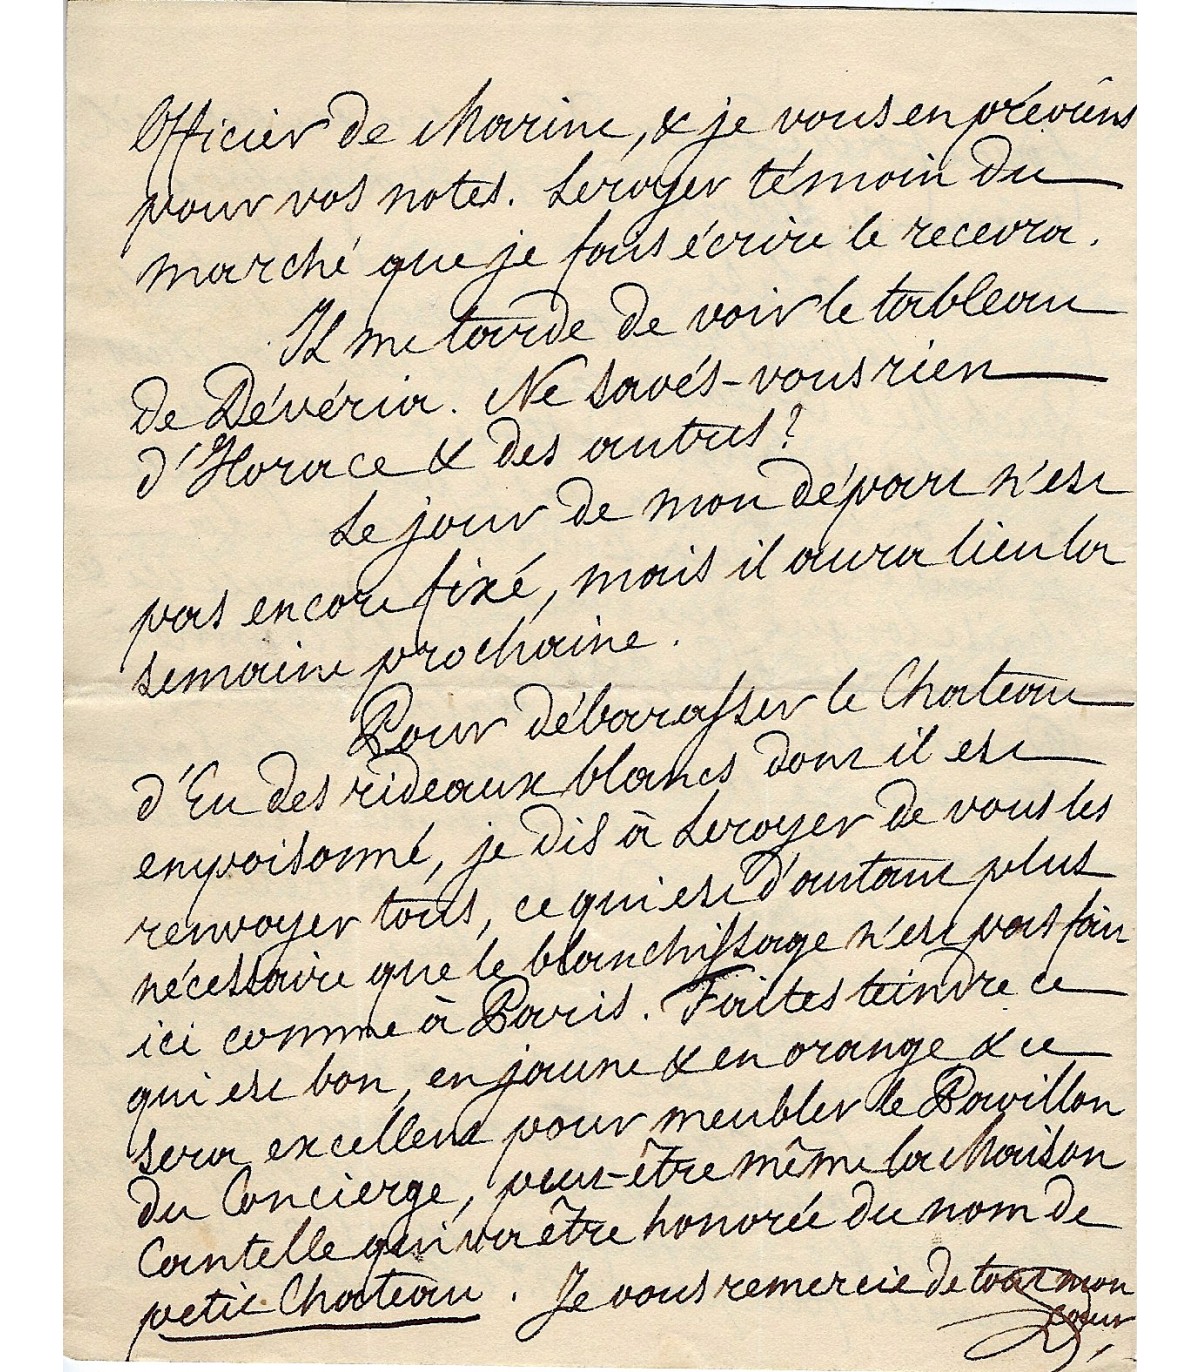 Officier de Marine, & je vous en préviens
pour vos notes. Leroyer témoin du
marché que je fais écrire le recevra.
Il me tarde de voir le tableau
de Dévéria. Ne savés-vous rien
d'Horace & des autres?
Le jour de mon départ n'est
pas encore fixé, mais il aura lieu la
semaine prochaine.
Pour débarasser le Chateau
d'Eu des rideaux blancs dont il est
empoisonné, je dis à Leroyer de vous les
renvoyer tous, ce qui est d'autant plus
nécessaire que le blanchissage n'est pas fait
ici comme à Paris. Faites teindre ce
qui est bon, en jaune & en orange & ce
sera excellent pour meubler le Pavillon
du Concierge, peut-être même la Maison
Cantelle qui va être honorée du nom de
petit Chateau. Je vous remercie de tout mon
cœur